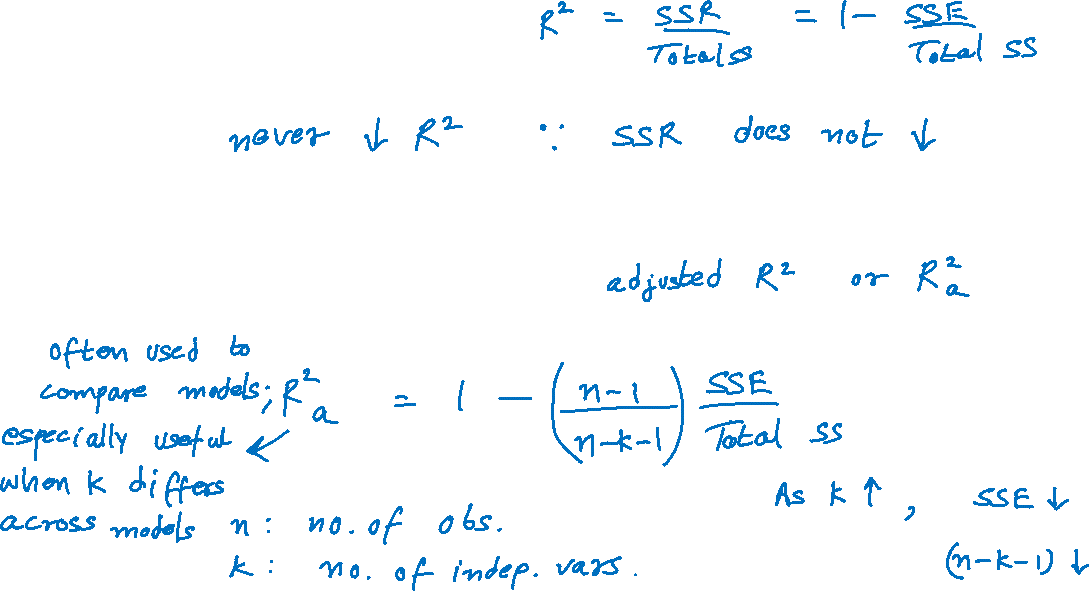 R² = SSR / Total SS = 1 - SSE / Total SS
never ↓ R² ∵ SSR does not ↓
adjusted R² or R²ₐ
often used to
compare models;
especially useful
when k differs
across models
R²ₐ = 1 - ((n-1)/(n-k-1)) SSE / Total SS
As k ↑, SSE ↓
(n-k-1) ↓
n : no. of obs.
k : no. of indep. vars.